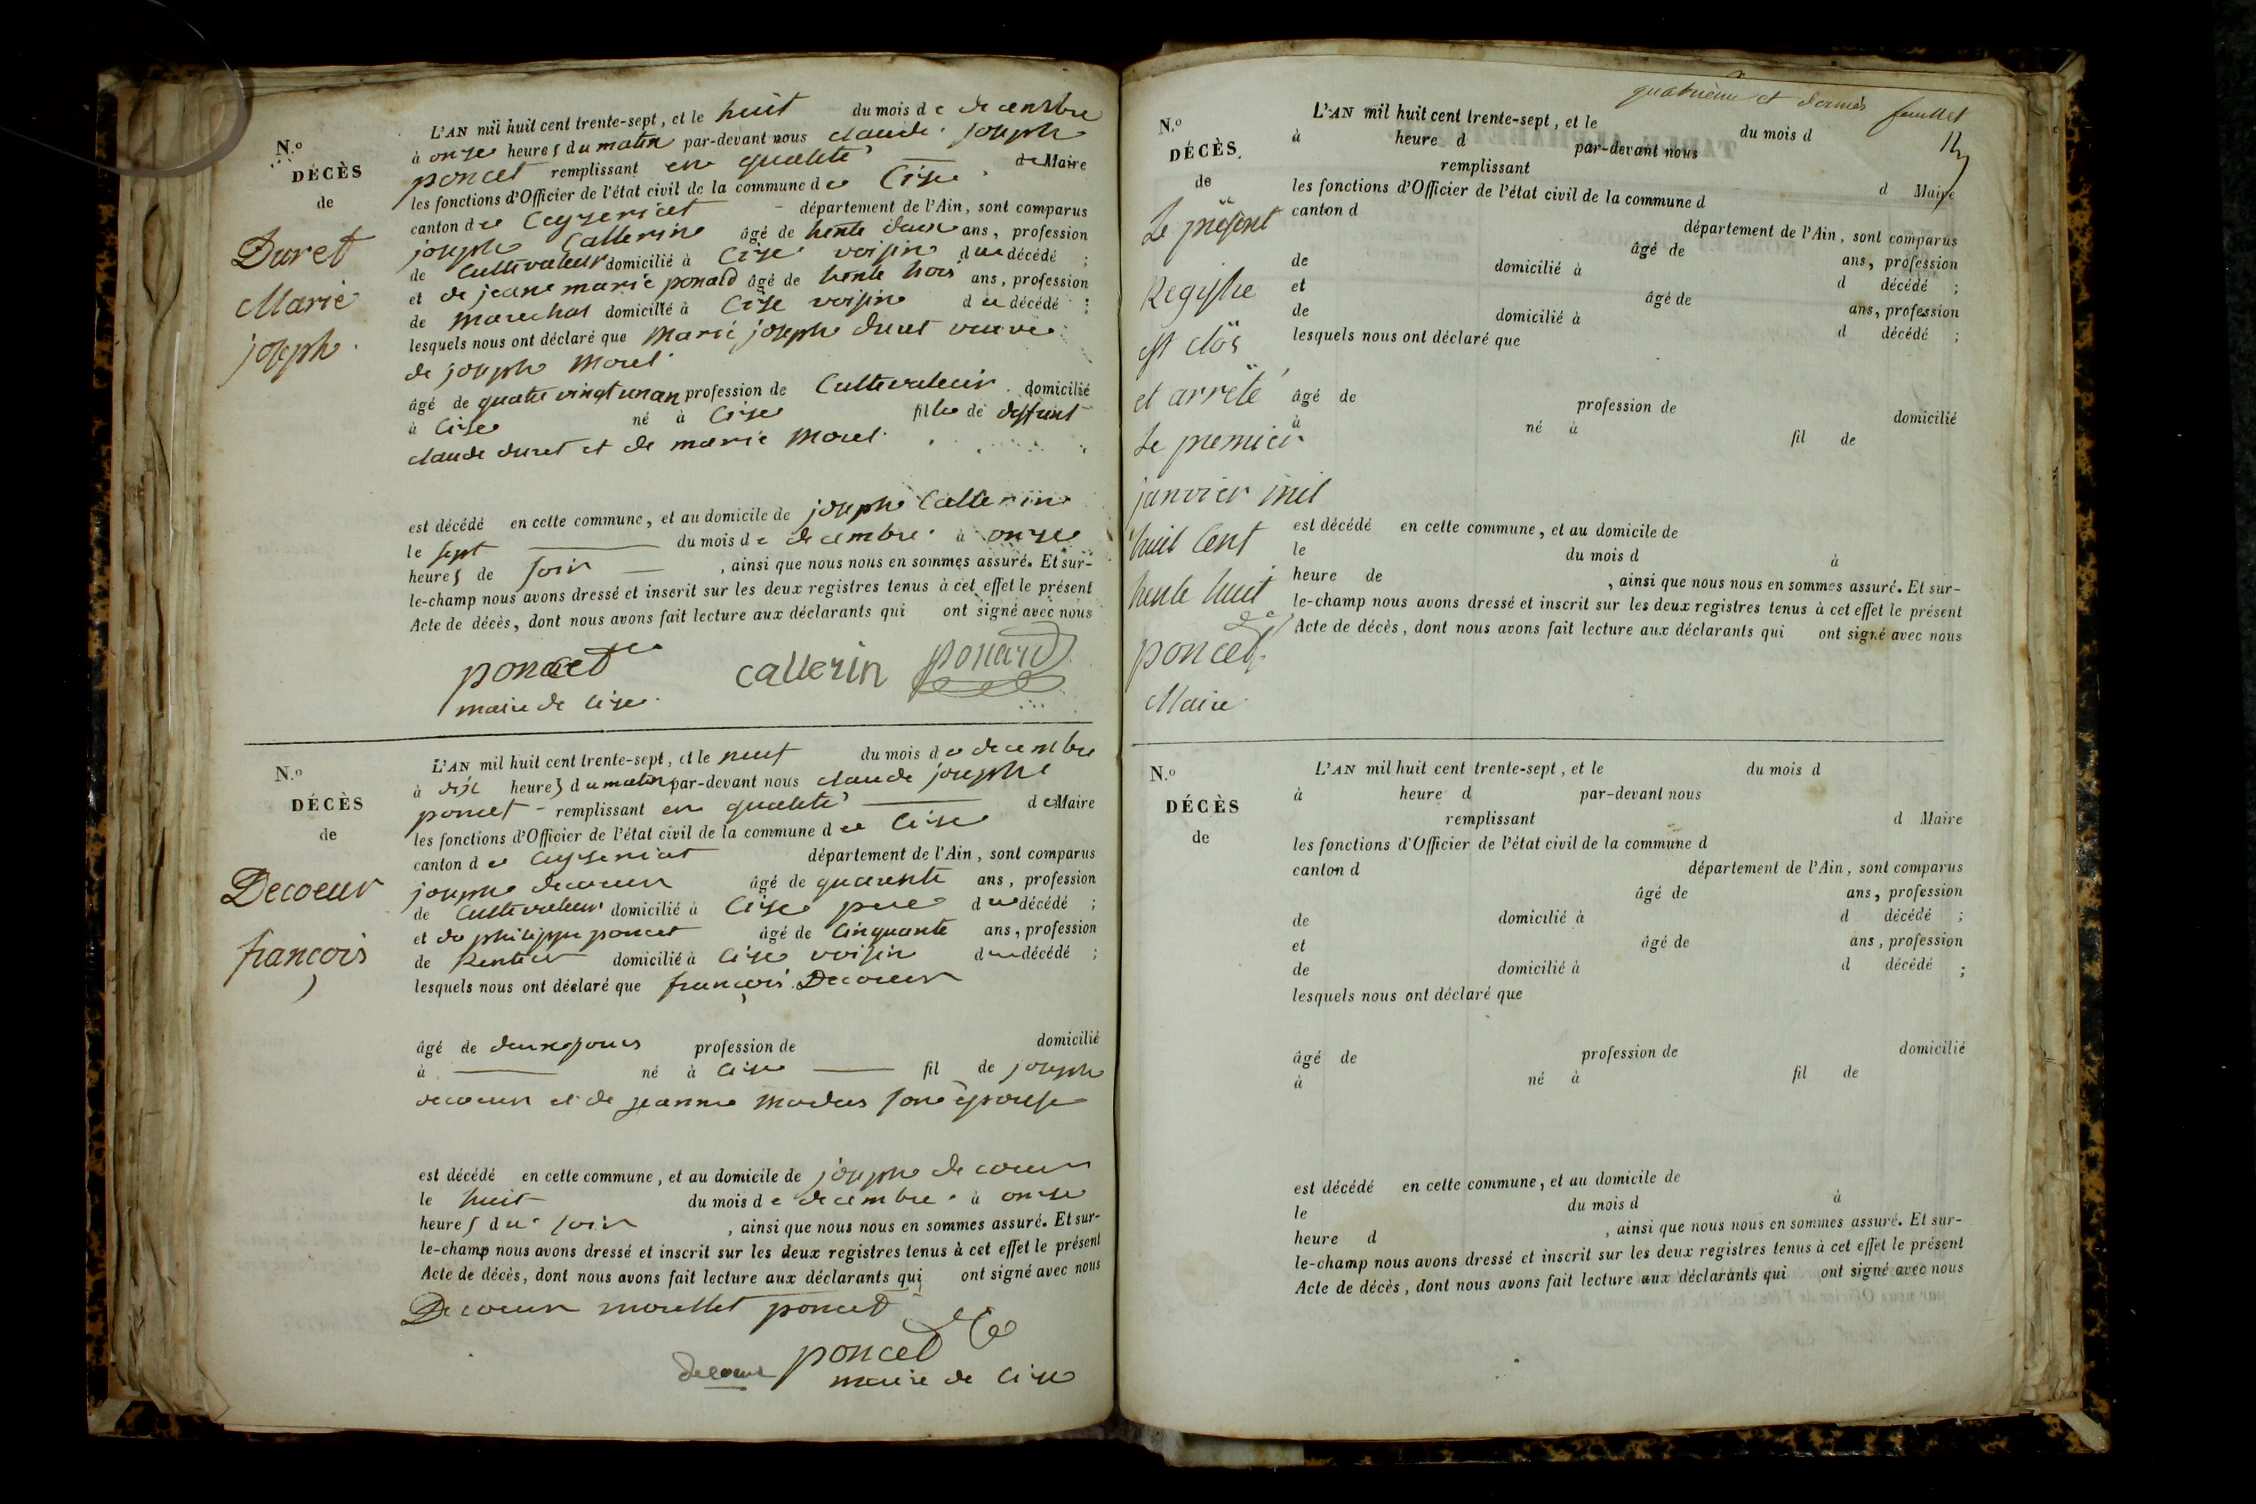 N.º
DÉCÈS
de
Duret
Marie
joseph
L'AN mil huit cent trente-sept, et le huit du mois de decembre
à onze heures du matin par-devant nous claude joseph
poncet remplissant en qualité de Maire
les fonctions d'Officier de l'état civil de la commune de Cize
canton de Ceyzeriat département de l'Ain, sont comparus
joseph Callerin âgé de trente deux ans, profession
de Cultivateur domicilié à Cize voisin du décédé ;
et de jeane marie ponard âgé de trente trois ans, profession
de marechal domicilié à Cize voisin du décédé ;
lesquels nous ont déclaré que Marie joseph duret veuve
de joseph Morel
âgé de quatre vingt un an profession de Cultivateur domicilié
à Cize né à Cize fille de deffunt
claude duret et de marie Morel
est décédé en cette commune, et au domicile de joseph Callerin
le sept du mois de decembre à onze
heures de soir , ainsi que nous nous en sommes assuré. Et sur-
le-champ nous avons dressé et inscrit sur les deux registres tenus à cet effet le présent
Acte de décès, dont nous avons fait lecture aux déclarants qui ont signé avec nous
poncet callerin ponard
maire de Cize
N.º
DÉCÈS
de
Decoeur
françois
L'AN mil huit cent trente-sept, et le neuf du mois de decembre
à dix heures du matin par-devant nous claude joseph
poncet remplissant en qualité de Maire
les fonctions d'Officier de l'état civil de la commune de Cize
canton de Ceyzeriat département de l'Ain, sont comparus
joseph decoeur âgé de quarente ans, profession
de Cultivateur domicilié à Cize pere du décédé ;
et de philippe poncet âgé de Cinquante ans, profession
de Rentier domicilié à Cize voisin du décédé ;
lesquels nous ont déclaré que françois Decoeur
âgé de deux jours profession de domicilié
à né à Cize fil de joseph
decoeur et de jeanne son épouse
est décédé en cette commune, et au domicile de joseph decoeur
le huit du mois de decembre à onze
heures du soir , ainsi que nous nous en sommes assuré. Et sur-
le-champ nous avons dressé et inscrit sur les deux registres tenus à cet effet le présent
Acte de décès, dont nous avons fait lecture aux déclarants qui ont signé avec nous
Decoeur poncet
decoeur poncet
maire de Cize
quatrième et dernier feuillet
N.º
DÉCÈS
de
Le présent
Registre
est clos
et arrêté
Le premier
janvier mil
huit Cent
trente huit
poncet
Maire
L'AN mil huit cent trente-sept, et le du mois d
à heure d par-devant nous
remplissant d Maire
les fonctions d'Officier de l'état civil de la commune d
canton d département de l'Ain, sont comparus
âgé de ans, profession
de domicilié à d décédé ;
et âgé de ans, profession
de domicilié à d décédé ;
lesquels nous ont déclaré que
âgé de profession de domicilié
à né à fil de
est décédé en cette commune, et au domicile de
le du mois d à
heure de , ainsi que nous nous en sommes assuré. Et sur-
le-champ nous avons dressé et inscrit sur les deux registres tenus à cet effet le présent
Acte de décès, dont nous avons fait lecture aux déclarants qui ont signé avec nous
N.º
DÉCÈS
de
L'AN mil huit cent trente-sept, et le du mois d
à heure d par-devant nous
remplissant d Maire
les fonctions d'Officier de l'état civil de la commune d
canton d département de l'Ain, sont comparus
âgé de ans, profession
de domicilié à d décédé ;
et âgé de ans, profession
de domicilié à d décédé ;
lesquels nous ont déclaré que
âgé de profession de domicilié
à né à fil de
est décédé en cette commune, et au domicile de
le du mois d à
heure d , ainsi que nous nous en sommes assuré. Et sur-
le-champ nous avons dressé et inscrit sur les deux registres tenus à cet effet le présent
Acte de décès, dont nous avons fait lecture aux déclarants qui ont signé avec nous